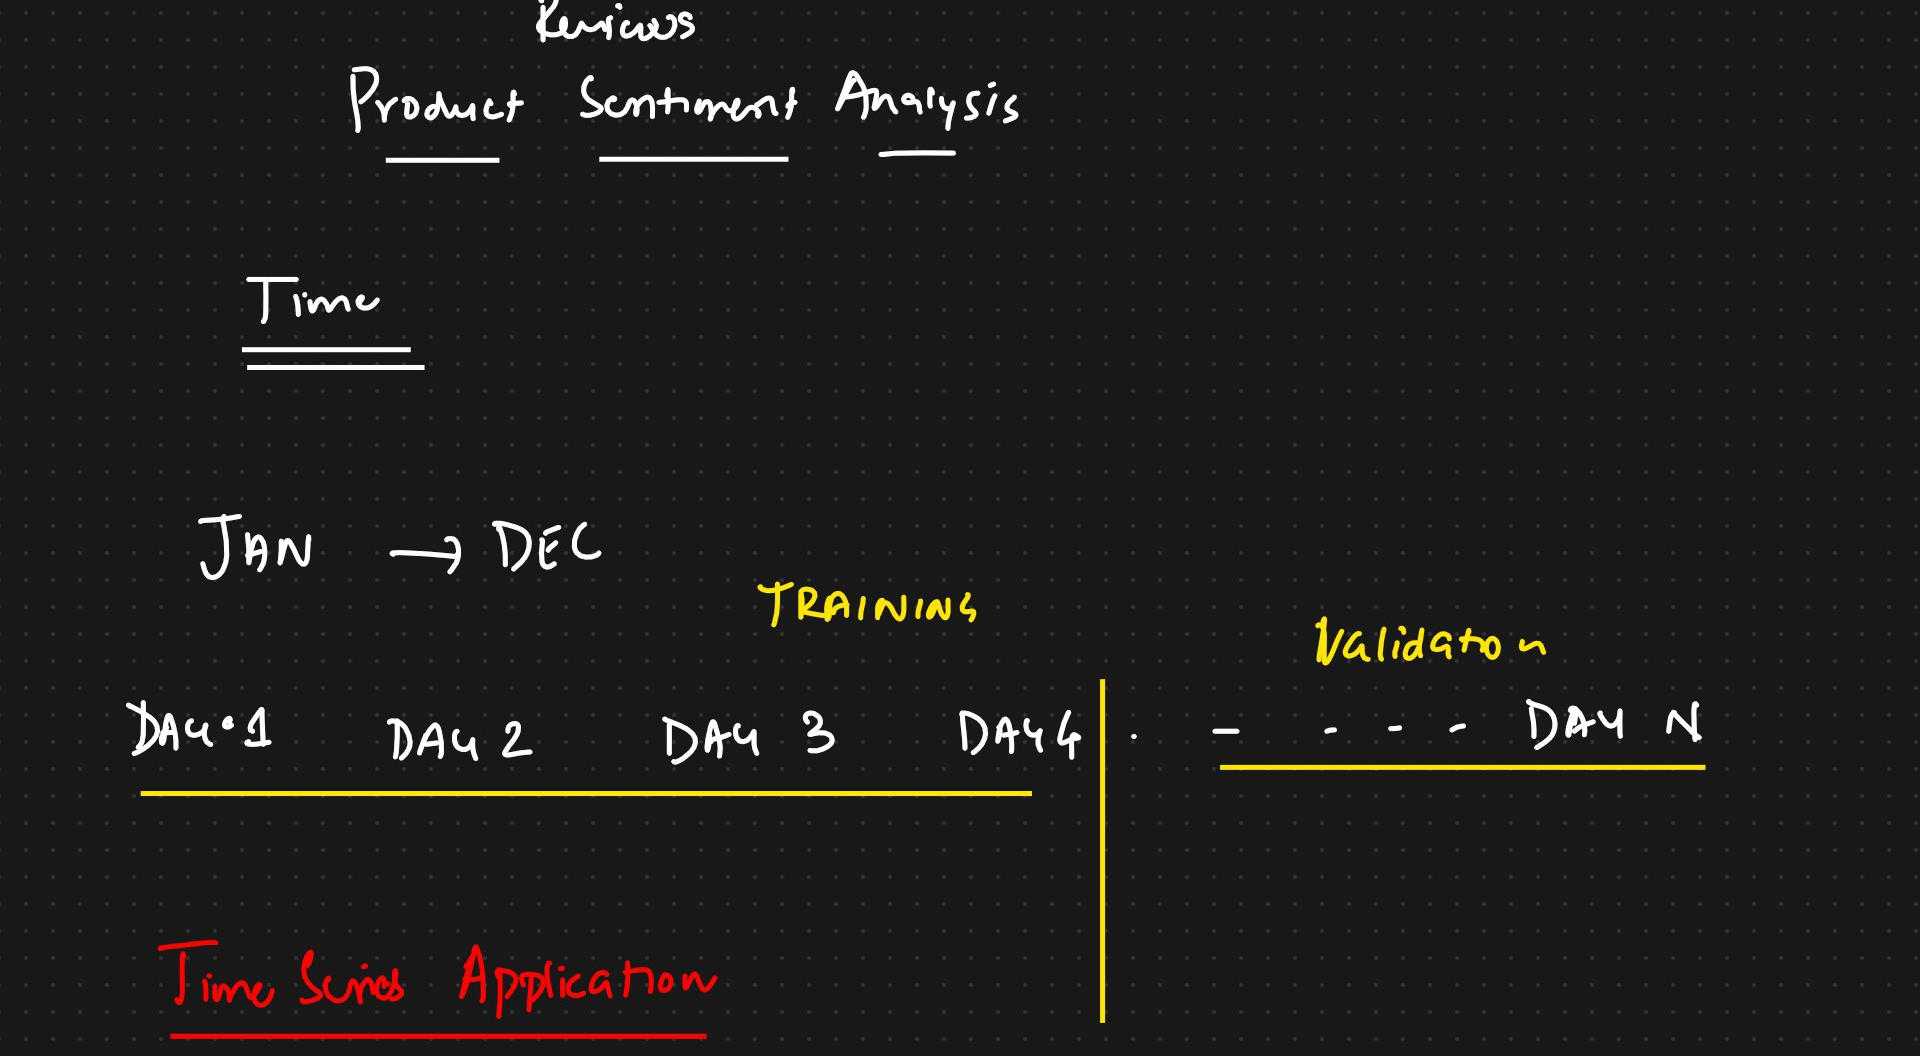 Reviews
Product Sentiment Analysis
Time
JAN → DEC
TRAINING
Validation
DAY 1 DAY 2 DAY 3 DAY 4 . - - - - DAY N
Time Series Application